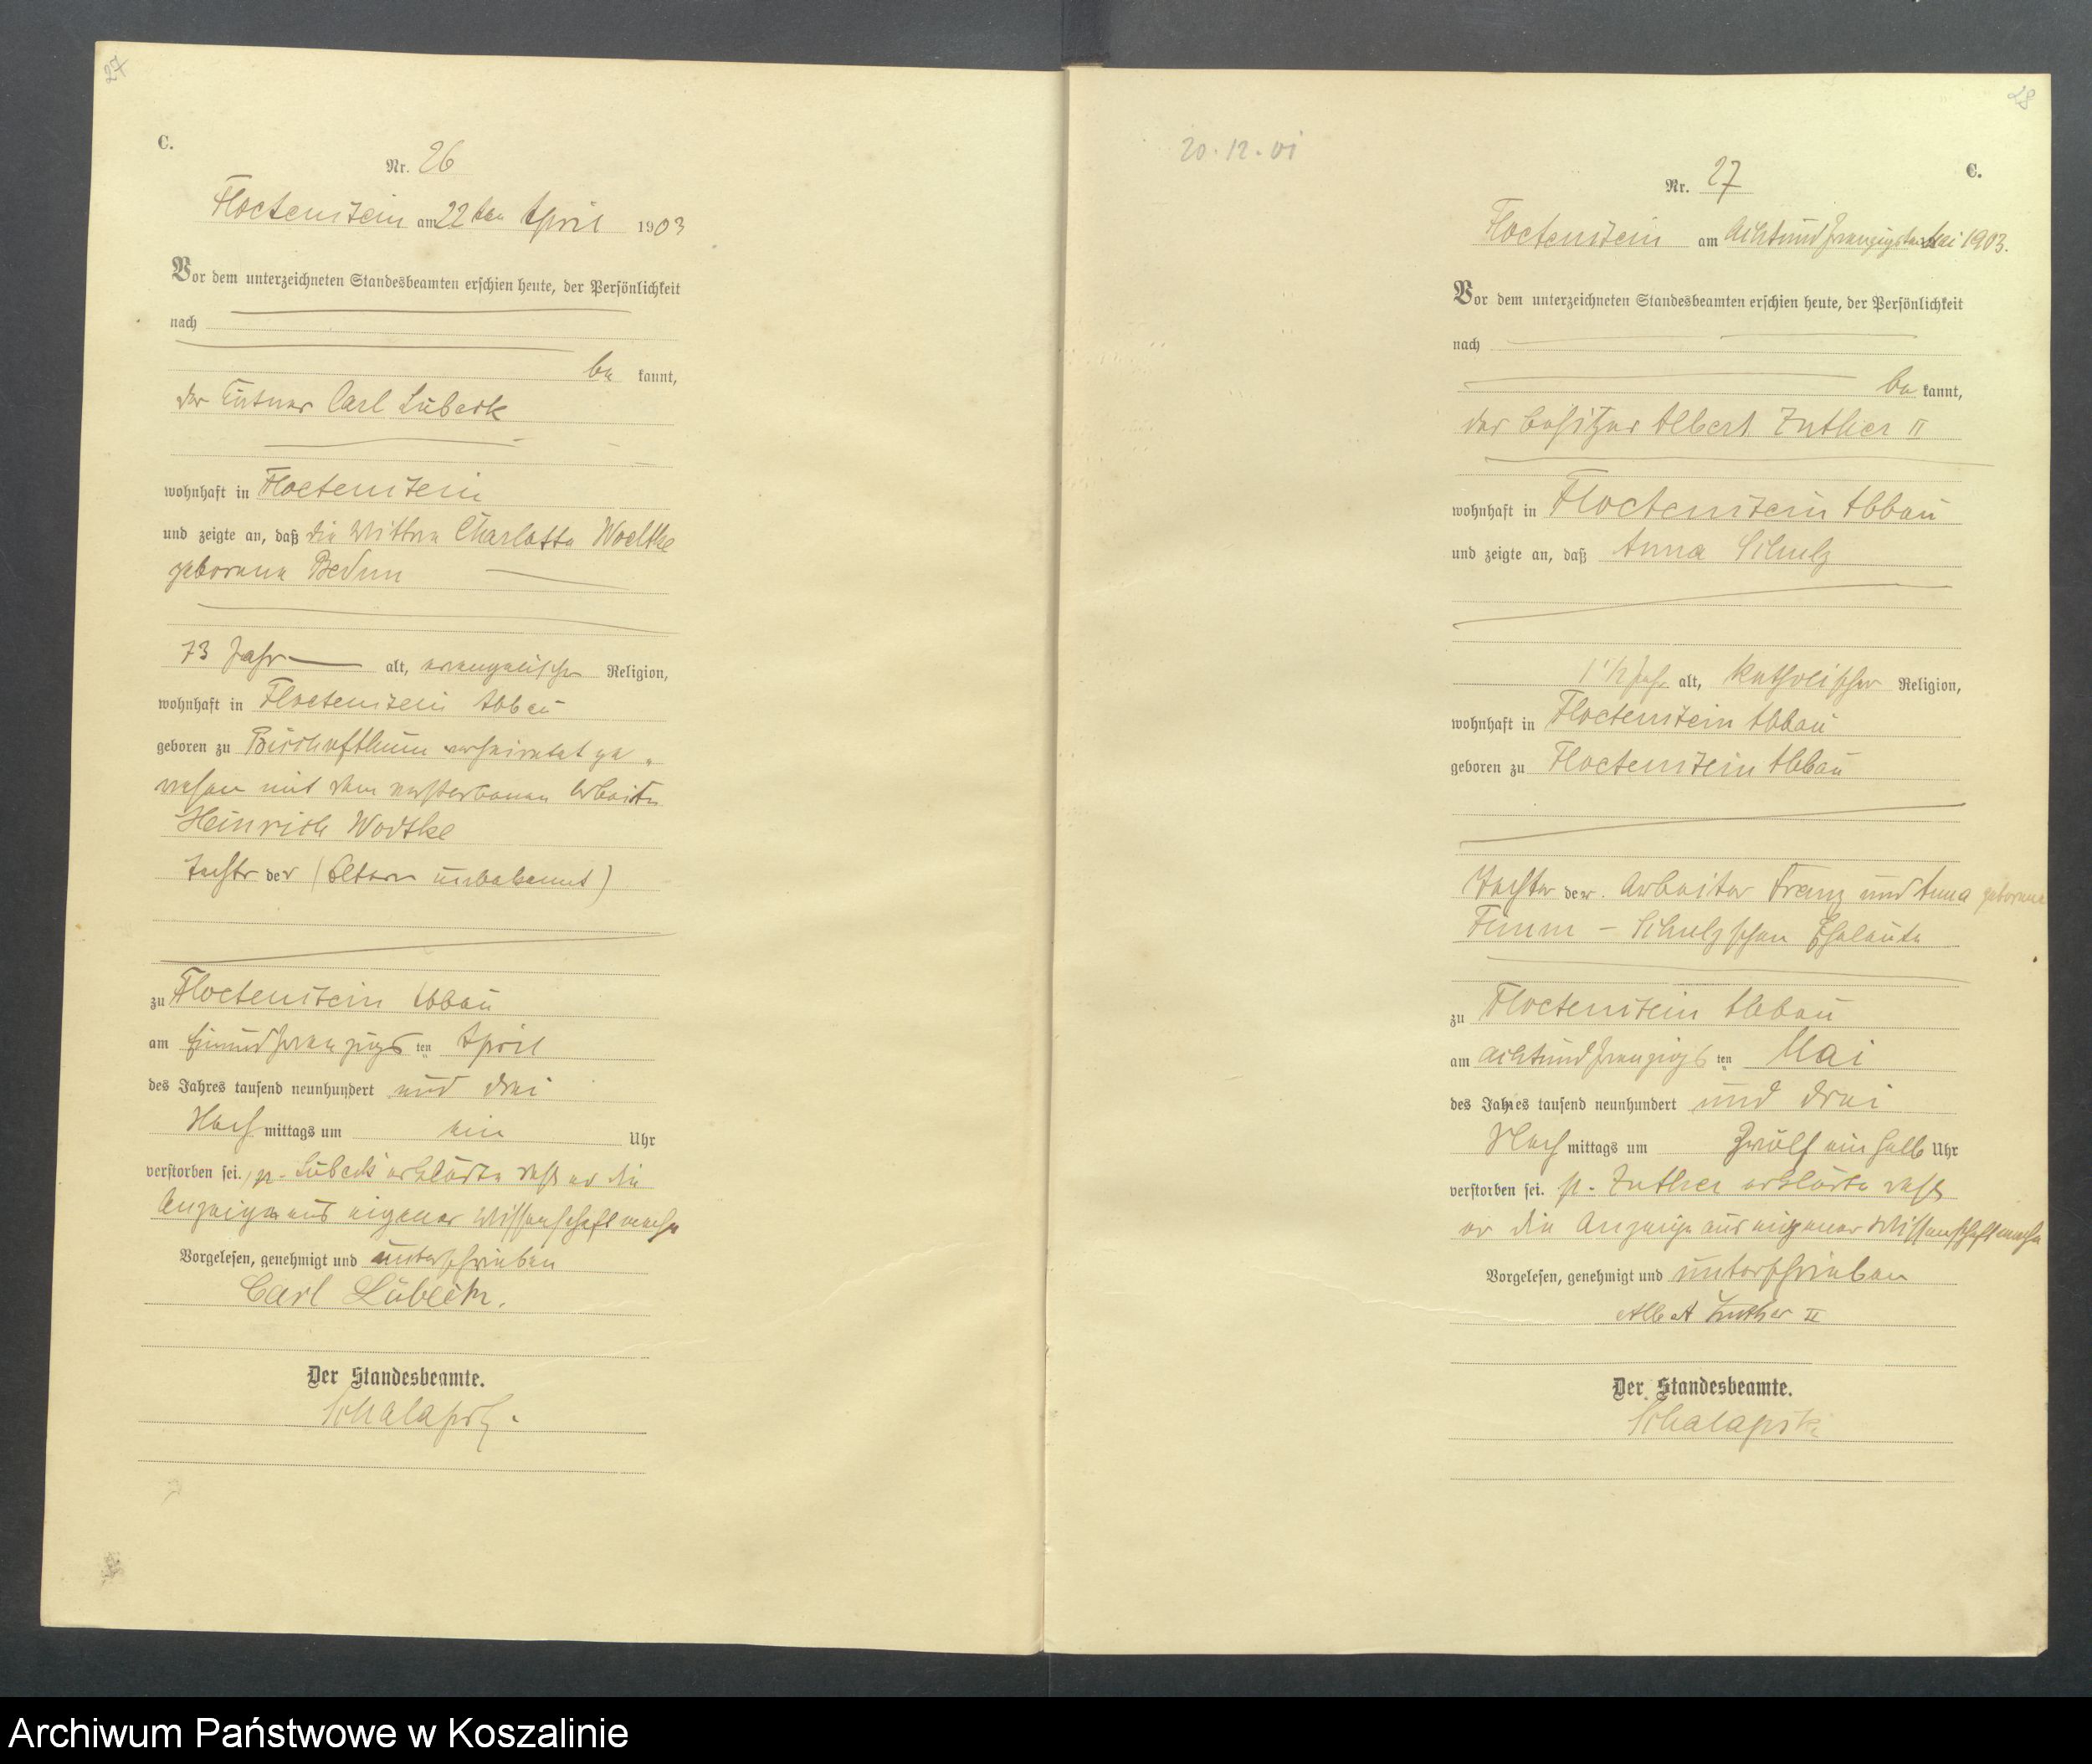 27
C.
Nr. 26
Floetenstein am 22ten April 1903
Vor dem unterzeichneten Standesbeamten erschien heute, der Persönlichkeit
nach
be kannt,
der Carl Lübeck
wohnhaft in Floetenstein
und zeigte an, daß die Wittwe Charlotte Woedtke
geborene
73 Jahr alt, evangelischer Religion,
wohnhaft in Floetenstein Abbau
geboren zu Bischofthum verheiratet ge-
wesen mit dem verstorbenen Arbeiter
Heinrich Wodtke
Tochter der (Eltern unbekannt)
zu Floetenstein Abbau
am Einundzwanzigsten April
des Jahres tausend neunhundert und drei
Nachmittags um ein Uhr
verstorben sei. p. Lübeck erklärte daß er die
Anzeige aus eigener Wissenschaft mache
Vorgelesen, genehmigt und unterschrieben
Carl Lübeck.
Der Standesbeamte.
28
20.12.01
C.
Nr. 27
Floetenstein am Achtundzwanzigsten Mai 1903.
Vor dem unterzeichneten Standesbeamten erschien heute, der Persönlichkeit
nach
be kannt,
der Besitzer Albert Zuther II
wohnhaft in Floetenstein Abbau
und zeigte an, daß Anna Schulz
1 1/2 Jahr alt, katholischer Religion,
wohnhaft in Floetenstein Abbau
geboren zu Floetenstein Abbau
Tochter der Arbeiter Franz und Anna geborene
Schulzschen Eheleute
zu Floetenstein Abbau
am achtundzwanzigsten Mai
des Jahres tausend neunhundert und drei
Nachmittags um Zwölf ein halb Uhr
verstorben sei. p. Zuther erklärte daß
er die Anzeige aus eigener Wissenschaft mache
Vorgelesen, genehmigt und unterschrieben
Albert Zuther II
Der Standesbeamte.
Archiwum Państwowe w Koszalinie